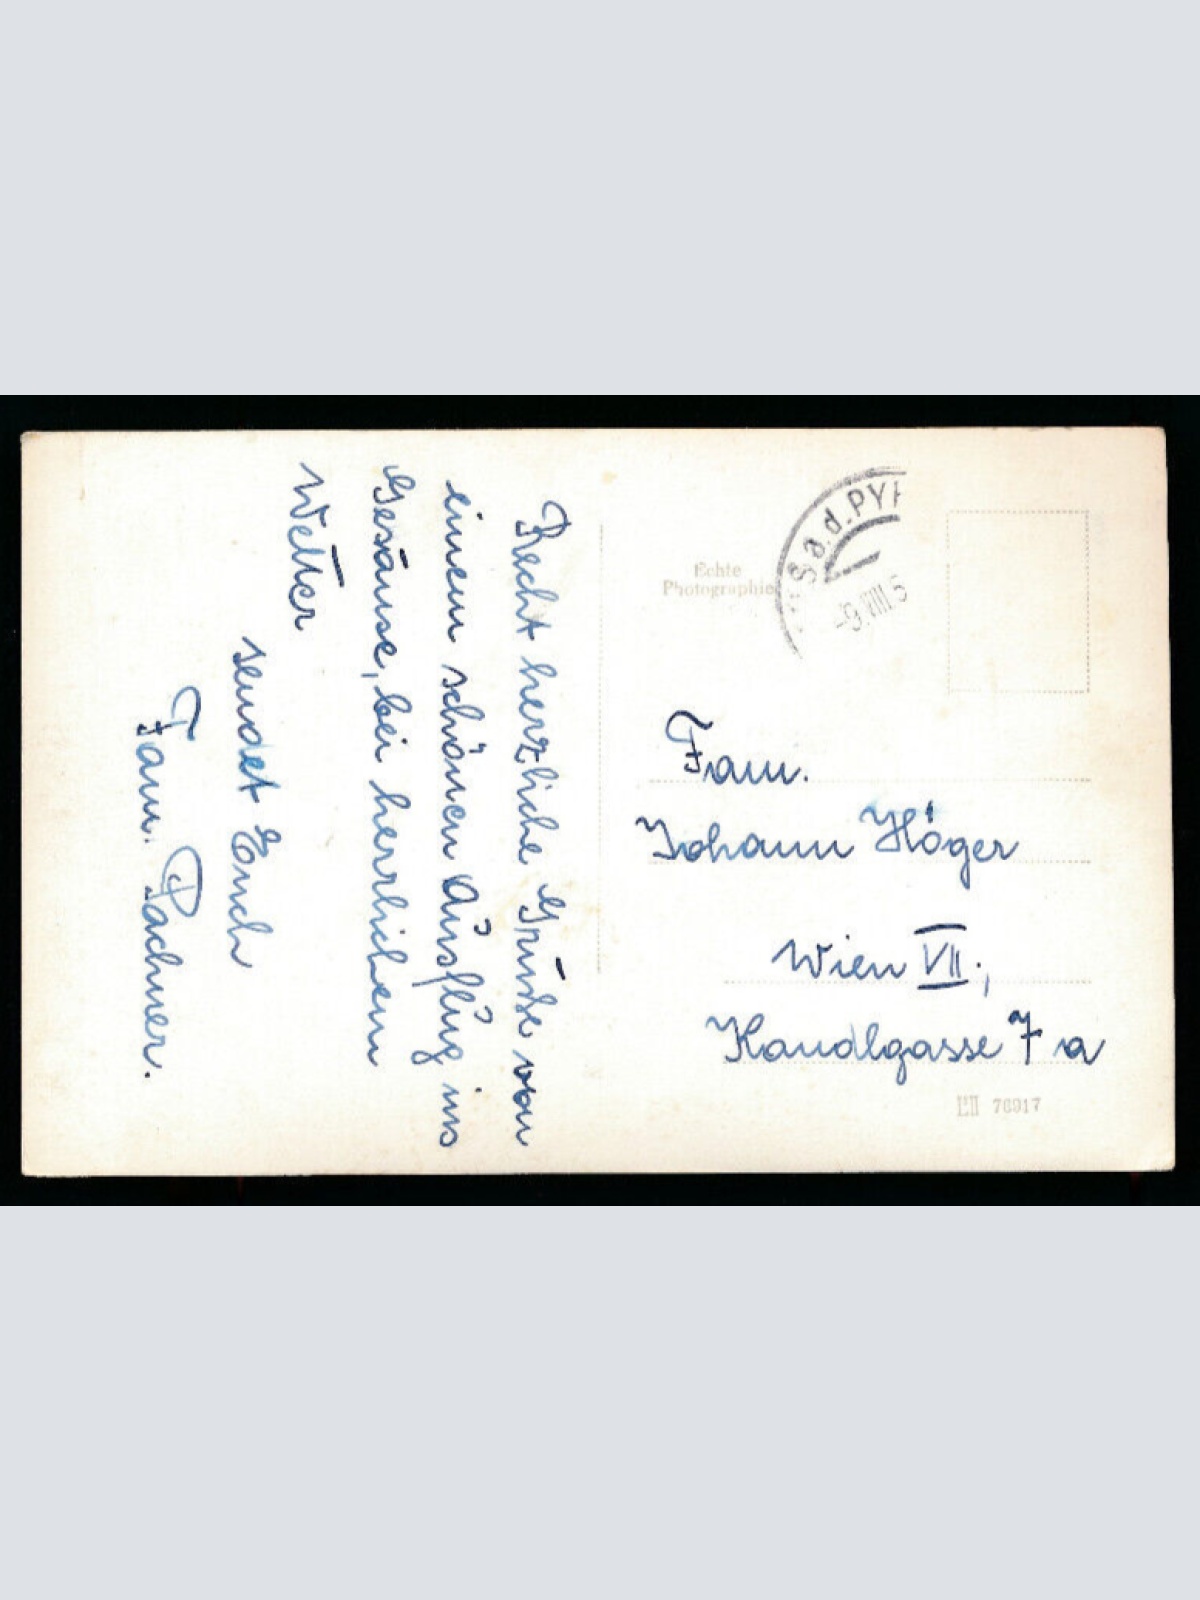 Recht herzliche Grüsse von
einem schönen Ausflug ins
Gesäuse, bei herrlichem
Wetter
sendet Euch
Fam. Pachner.
Echte
Photographie
S a. d. PYH
-9.VIII.5
Fam.
Johann Höger
Wien VII.,
Kandlgasse 7 a
76917